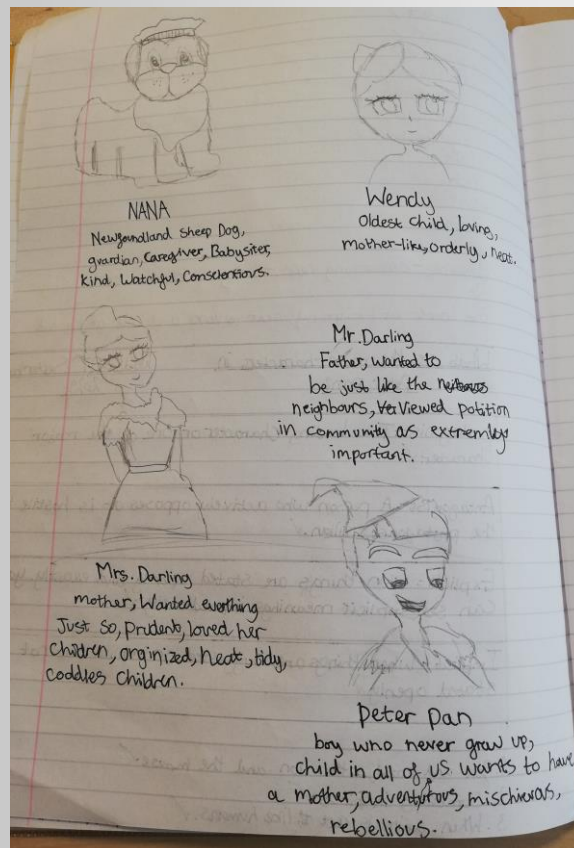 NANA
Newfoundland Sheep Dog,
guardian, Caregiver, Babysiter,
Kind, Watchful, Conscientious.
Wendy
Oldest Child, loving,
mother-like, orderly, neat.
Mr. Darling
Father, wanted to
be just like the
neighbours, Viewed potition
in community as extremley
important.
Mrs. Darling
mother, Wanted everthing
Just So, prudent, loved her
Children, orginized, neat, tidy,
coddles children.
Peter Pan
boy who never grow up,
child in all of us. wants to have
a mother, adventurous, mischievous,
rebellious.